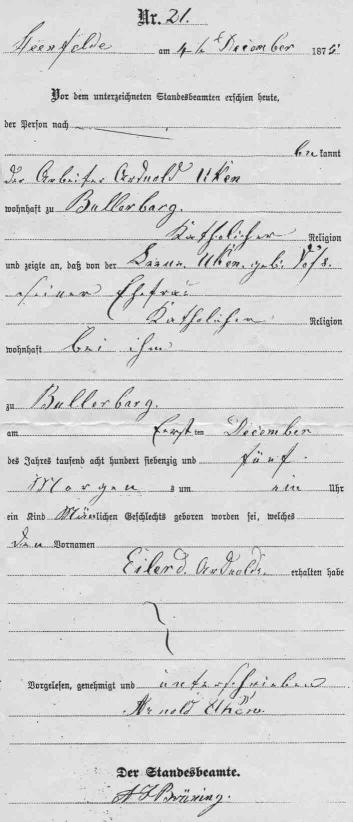 Nr. 21.
am 4ten December 1875
Vor dem unterzeichneten Standesbeamten erschien heute,
der Person nach
bekannt
der Arbeiter Arduold Uken
wohnhaft zu Bullerbarg.
Katholicher Religion
und zeigte an, daß von der Uken. geb. Voß.
seiner Ehefrau
Katholicher Religion
wohnhaft bei ihm
zu Bullerbarg.
am Ersten December
des Jahres tausend acht hundert siebenzig und fünf.
Morgens um ein Uhr
ein Kind Mänlichen Geschlechts geboren worden sei, welches
den Vornamen
Eilerd. erhalten habe
Vorgelesen, genehmigt und unterschrieben
Arnold Uken.
Der Standesbeamte.
Brüning.